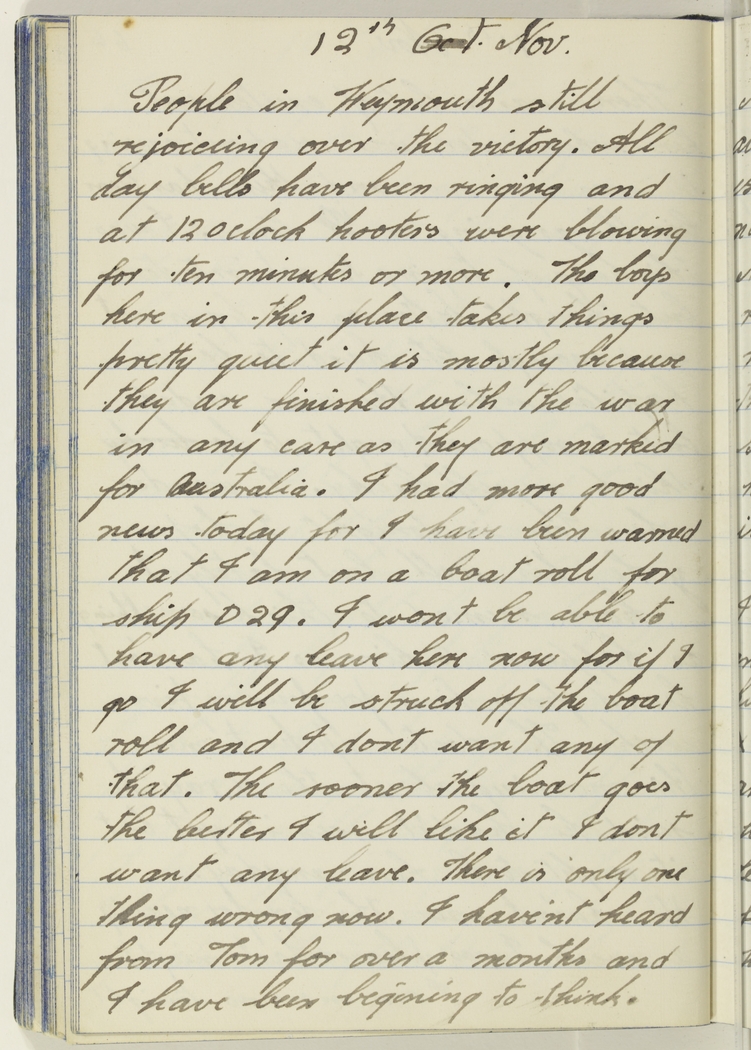 12th Oct. Nov.
People in Weymouth still
rejoiceing over the victory. All
day bells have been ringing and
at 12 oclock hooters were blowing
for ten minutes or more. The boys
here in this place takes things
pretty quiet it is mostly because
they are finished with the war
in any case as they are marked
for Australia. I had more good
news today for I have been warned
that I am on a boat roll for
ship D29. I wont be able to
have any leave here now for if I
go I will be struck off the boat
roll and I dont want any of
that. The sooner the boat goes
the better I will like it I dont
want any leave. There is only one
thing wrong now. I havent heard
from Tom for over a months and
I have been begining to think.